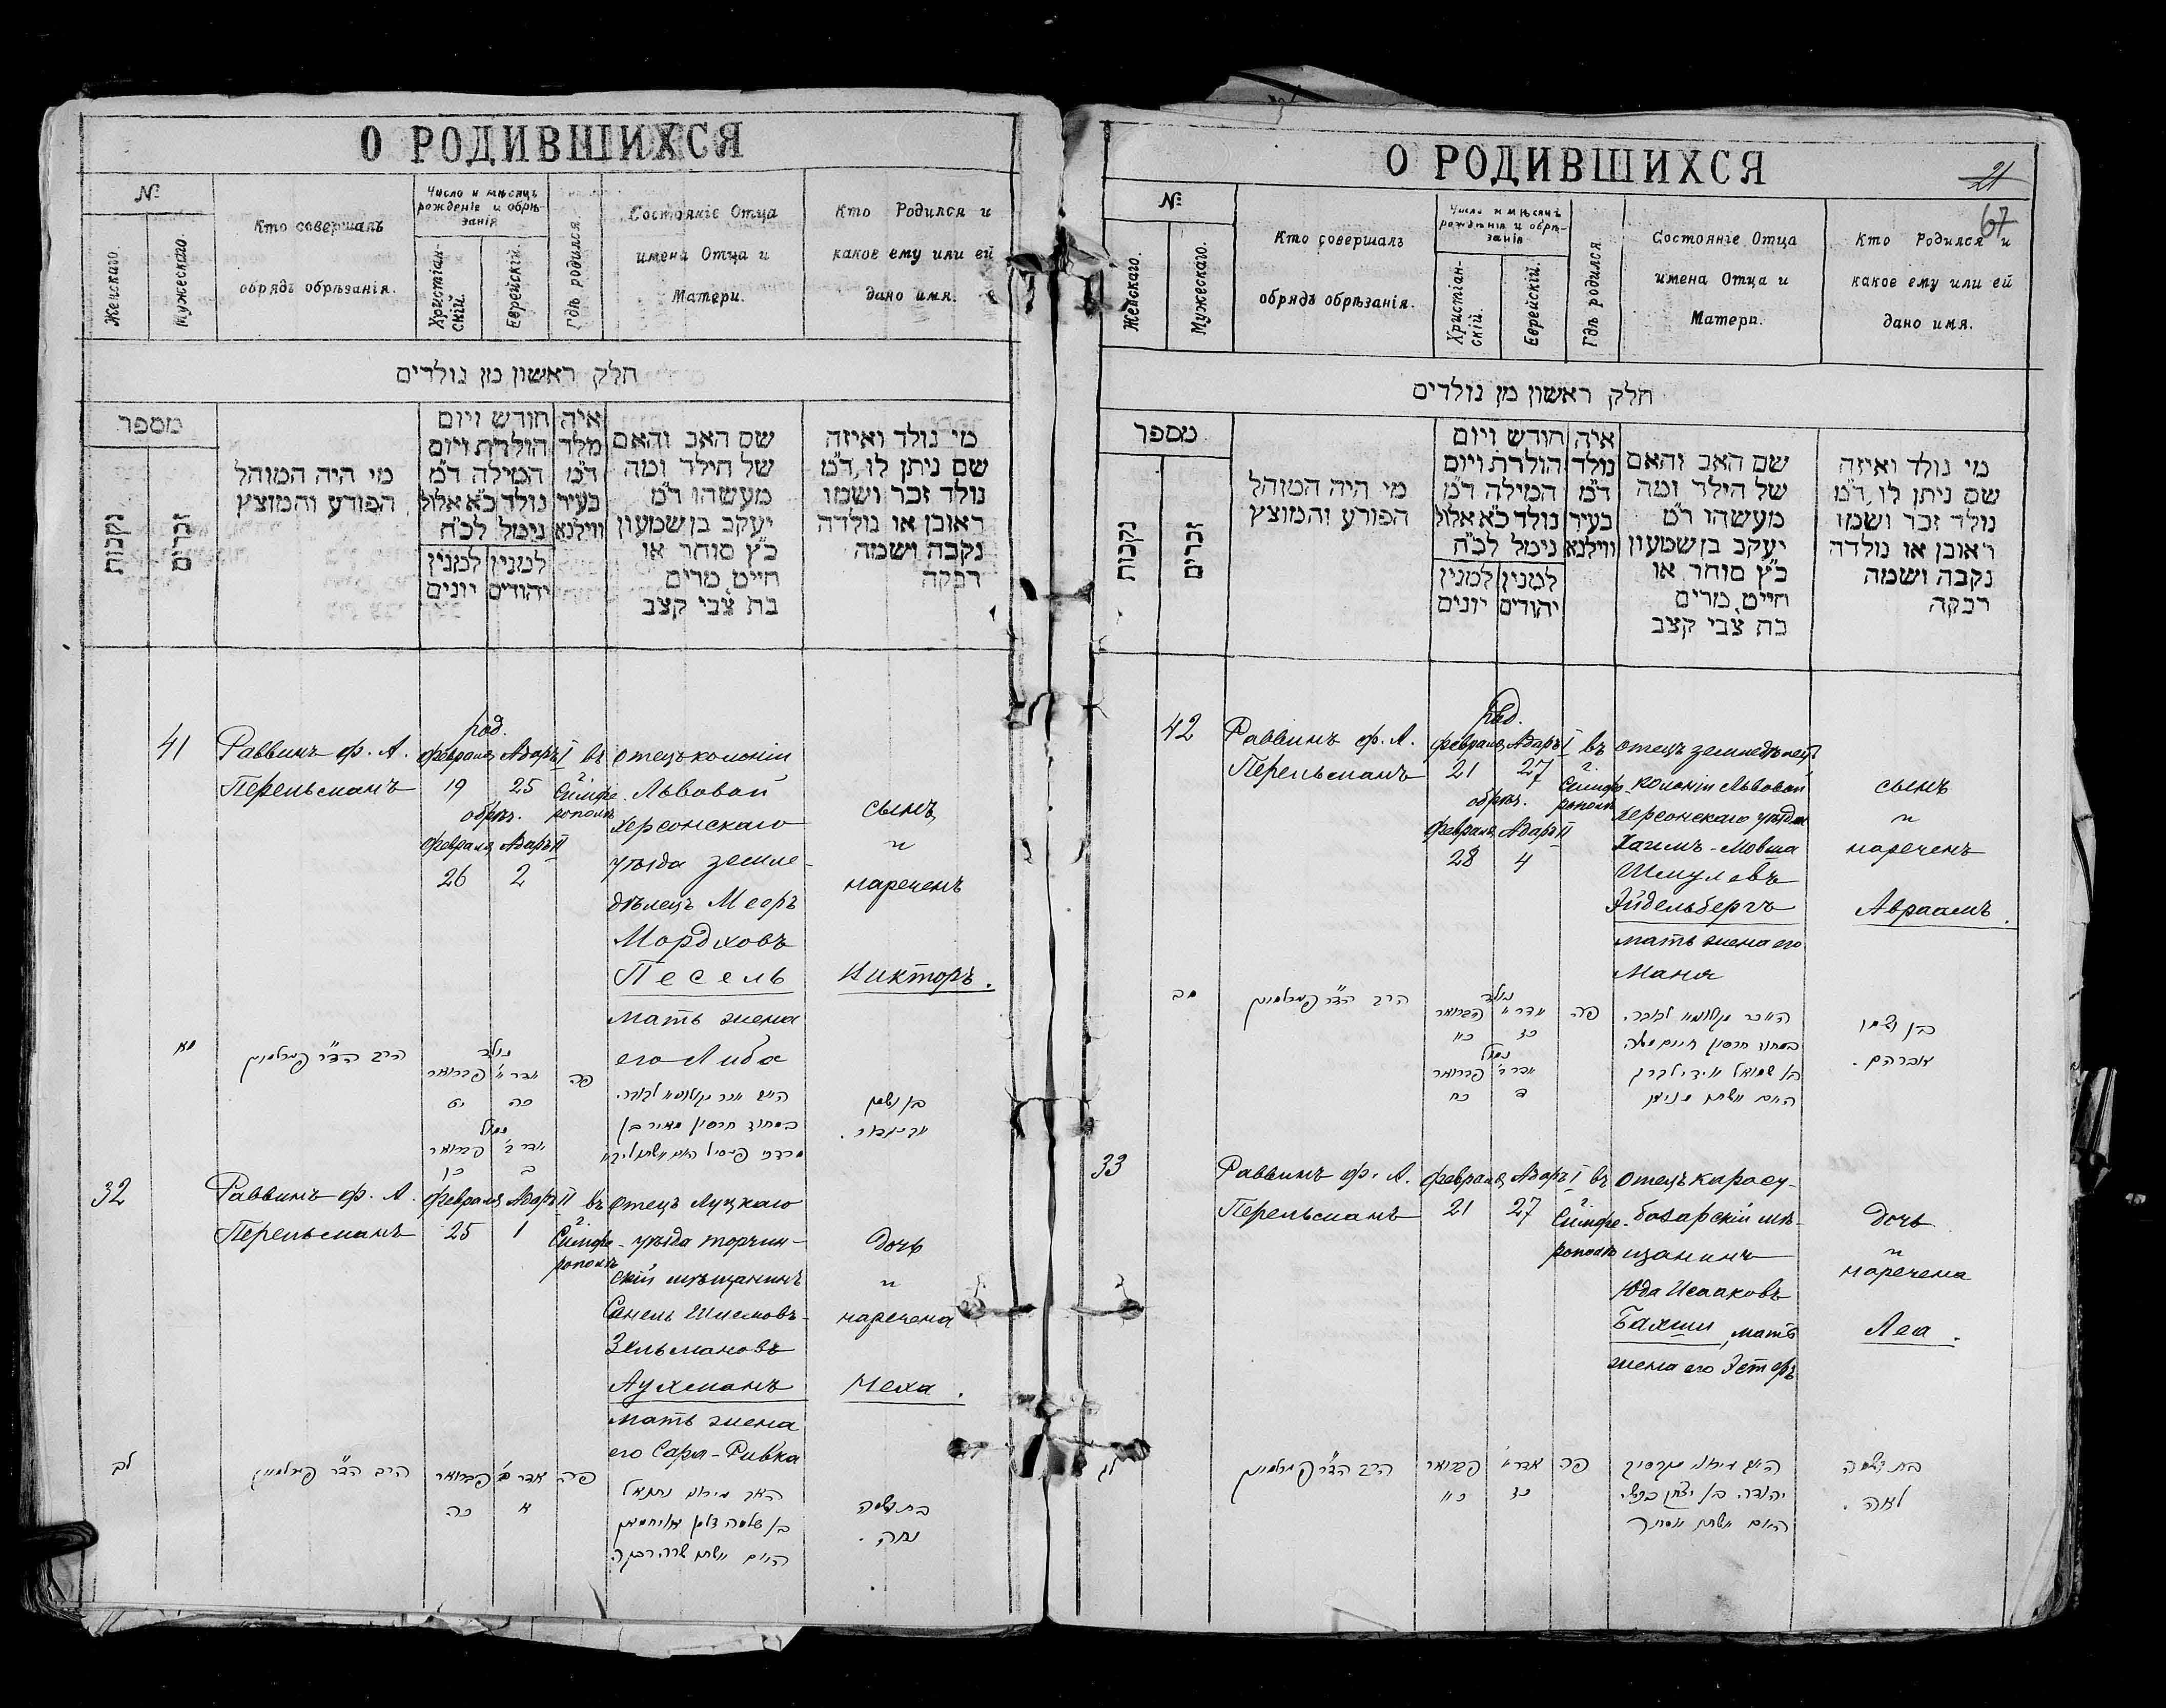 О РОДИВШИХСЯ
№
Женскаго.
Мужескаго.
Кто совершалъ
обрядъ обрѣзанія.
Число и мѣсяцъ
рожденіе и обрѣ-
занія
Христіан-
скій.
Еврейскій.
Гдѣ родился.
Состояніе Отца
имена Отца и
Матери.
Кто Родился и
какое ему или ей
дано имя.
חלק ראשון מן נולדים
מספר
נקבות
זכרים
מי היה המוהל
הפורע והמוצץ
חודש ויום
הולדת ויום
המילה ד״מ
נולד כ״א אלול
נימל לכ״ח
למנין
יונים
למנין
יהודים
איה
מלד
ד״מ
בעיר
ווילנא
שם האב והאם
של הילד ומה
מעשהו ד״מ
יעקב בן שמעון
כ״ץ סוחר או
חייט מרים
בת צבי קצב
מי נולד ואיזה
שם ניתן לו, ד״מ
נולד זכר ושמו
ראובן או נולדה
נקבה ושמה
רבקה
41
Раввинъ Ф. А.
Перельманъ
род.
февраля Адаръ I
19 25
обрѣз.
февраля Адаръ II
26 2
въ
г.
Симфе-
рополѣ
отецъ колоніи
Львовой
херсонскаго
уѣзда земле-
дѣлецъ Меоръ
Мордховъ
Песель
мать жена
его Либа
сынъ
и
нареченъ
Викторъ.
מא
נולד
אדר א׳ פברואר
כה יט
נמול
אדר ב׳ פברואר
ב כו
פה
32
Раввинъ Ф. А.
Перельманъ
февраля Адаръ II
25 1
въ
г.
Симфе-
рополѣ
отецъ Луцкаго
уѣзда торчин-
скій мѣщанинъ
Санель Шлемовъ-
Зельмановъ
Аухманъ
мать жена
его Сара-Ривка
дочь
и
наречена
Неха.
לב
אדר ב׳ פברואר
א כה
פה
בן שלמה זלמן אויחמאן
האם אשתו שרה רבקה
בת ושמה
נחה.
О РОДИВШИХСЯ
21
67
№
Женскаго.
Мужескаго.
Кто совершалъ
обрядъ обрѣзанія.
Число и мѣсяцъ
рожденія и обрѣ-
занія
Христіан-
скій.
Еврейскій.
Гдѣ родился
Состояніе Отца
имена Отца и
Матери.
Кто Родился и
какое ему или ей
дано имя.
חלק ראשון מן נולדים
מספר
נקבות
זכרים
מי היה המוהל
הפורע והמוצץ
חודש ויום
הולדת ויום
המילה ד״מ
נולד כ״א אלול
נימל לכ״ח
למנין
יונים
למנין
יהודים
איה
נולד
ד״מ
בעיר
ווילנא
שם האב והאם
של הילד ומה
מעשהו ד״מ
יעקב בן שמעון
כ״ץ סוחר או
חייט מרים
בת צבי קצב
מי נולד ואיזה
שם ניתן לו, ד״מ
נולד זכר ושמו
ראובן או נולדה
נקבה ושמה
רבקה
42
Раввинъ Ф. А.
Перельманъ
род.
февраля Адаръ I
21 27
обрѣз.
февраля Адаръ II
28 4
въ
г.
Симфе-
рополѣ
отецъ земледѣлецъ
колоніи Львовой
херсонскаго уѣзда
Хаимъ-Мовша
Шмулевъ
Эйдельбергъ
мать жена его
Маня
сынъ
и
нареченъ
Авраамъ.
מב
נולד
אדר א׳ פברואר
כז כא
נמול
אדר ב׳ פברואר
ד כח
פה
בן ושמו
אברהם.
33
Раввинъ Ф. А.
Перельманъ
февраля Адаръ I
21 27
въ
г.
Симфе-
рополѣ
отецъ карасу-
базарскій мѣ-
щанинъ
Юда Исааковъ
Бахши, мать
жена его Эстеръ
дочь
и
наречена
Леа.
לג
אדר א׳ פברואר
כז כא
פה
יהודה בן יצחק בכשי
האם אשתו אסתר
בת ושמה
לאה.